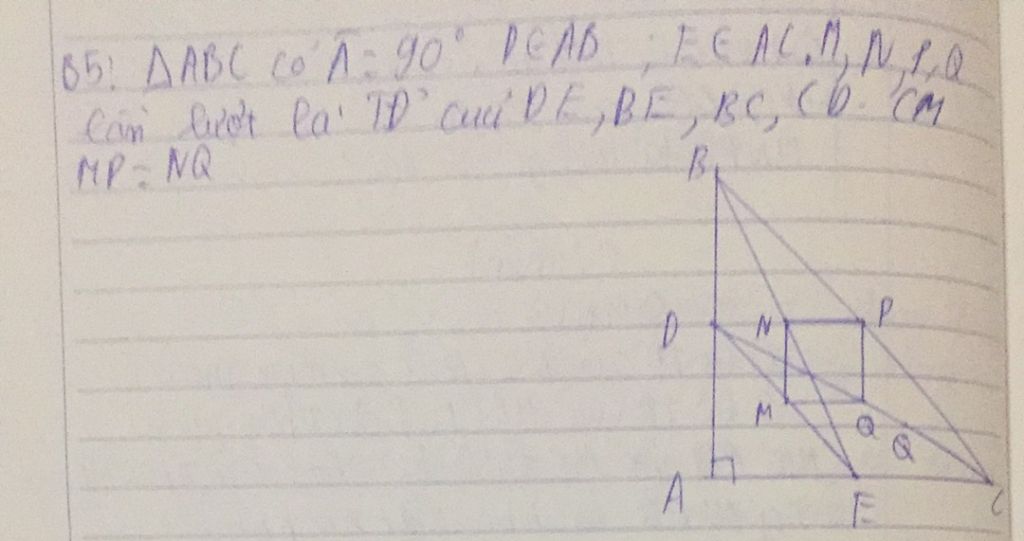 B5: ΔABC có Â = 90° D∈AB ; E∈AC. M, N, P, Q
lần lượt là TĐ của DE, BE, BC, CD. CM
MP = NQ
B
D N P
M Q Q
A E C